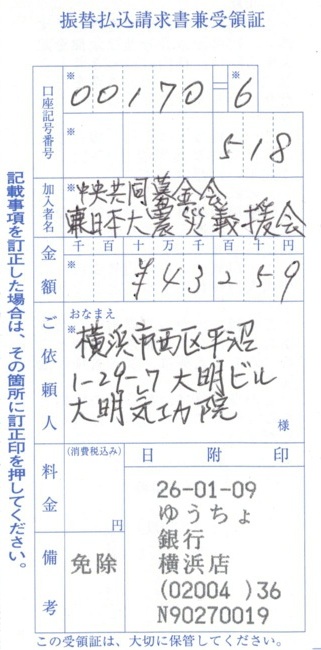 振替払込請求書兼受領証
口座記号番号
※ 00170 = ※ 6
※ 518
加入者名
※ 中央共同募金会
東日本大震災義援会
金額
千百十万千百十円
※ ¥43259
ご依頼人
おなまえ
※ 横浜市西区平沼
1-29-7 大明ビル
大明気功院
様
料金
(消費税込み)
円
備考
免除
日附印
26-01-09
ゆうちょ
銀行
横浜店
(02004 )36
N90270019
記載事項を訂正した場合は、その箇所に訂正印を押してください。
この受領証は、大切に保管してください。